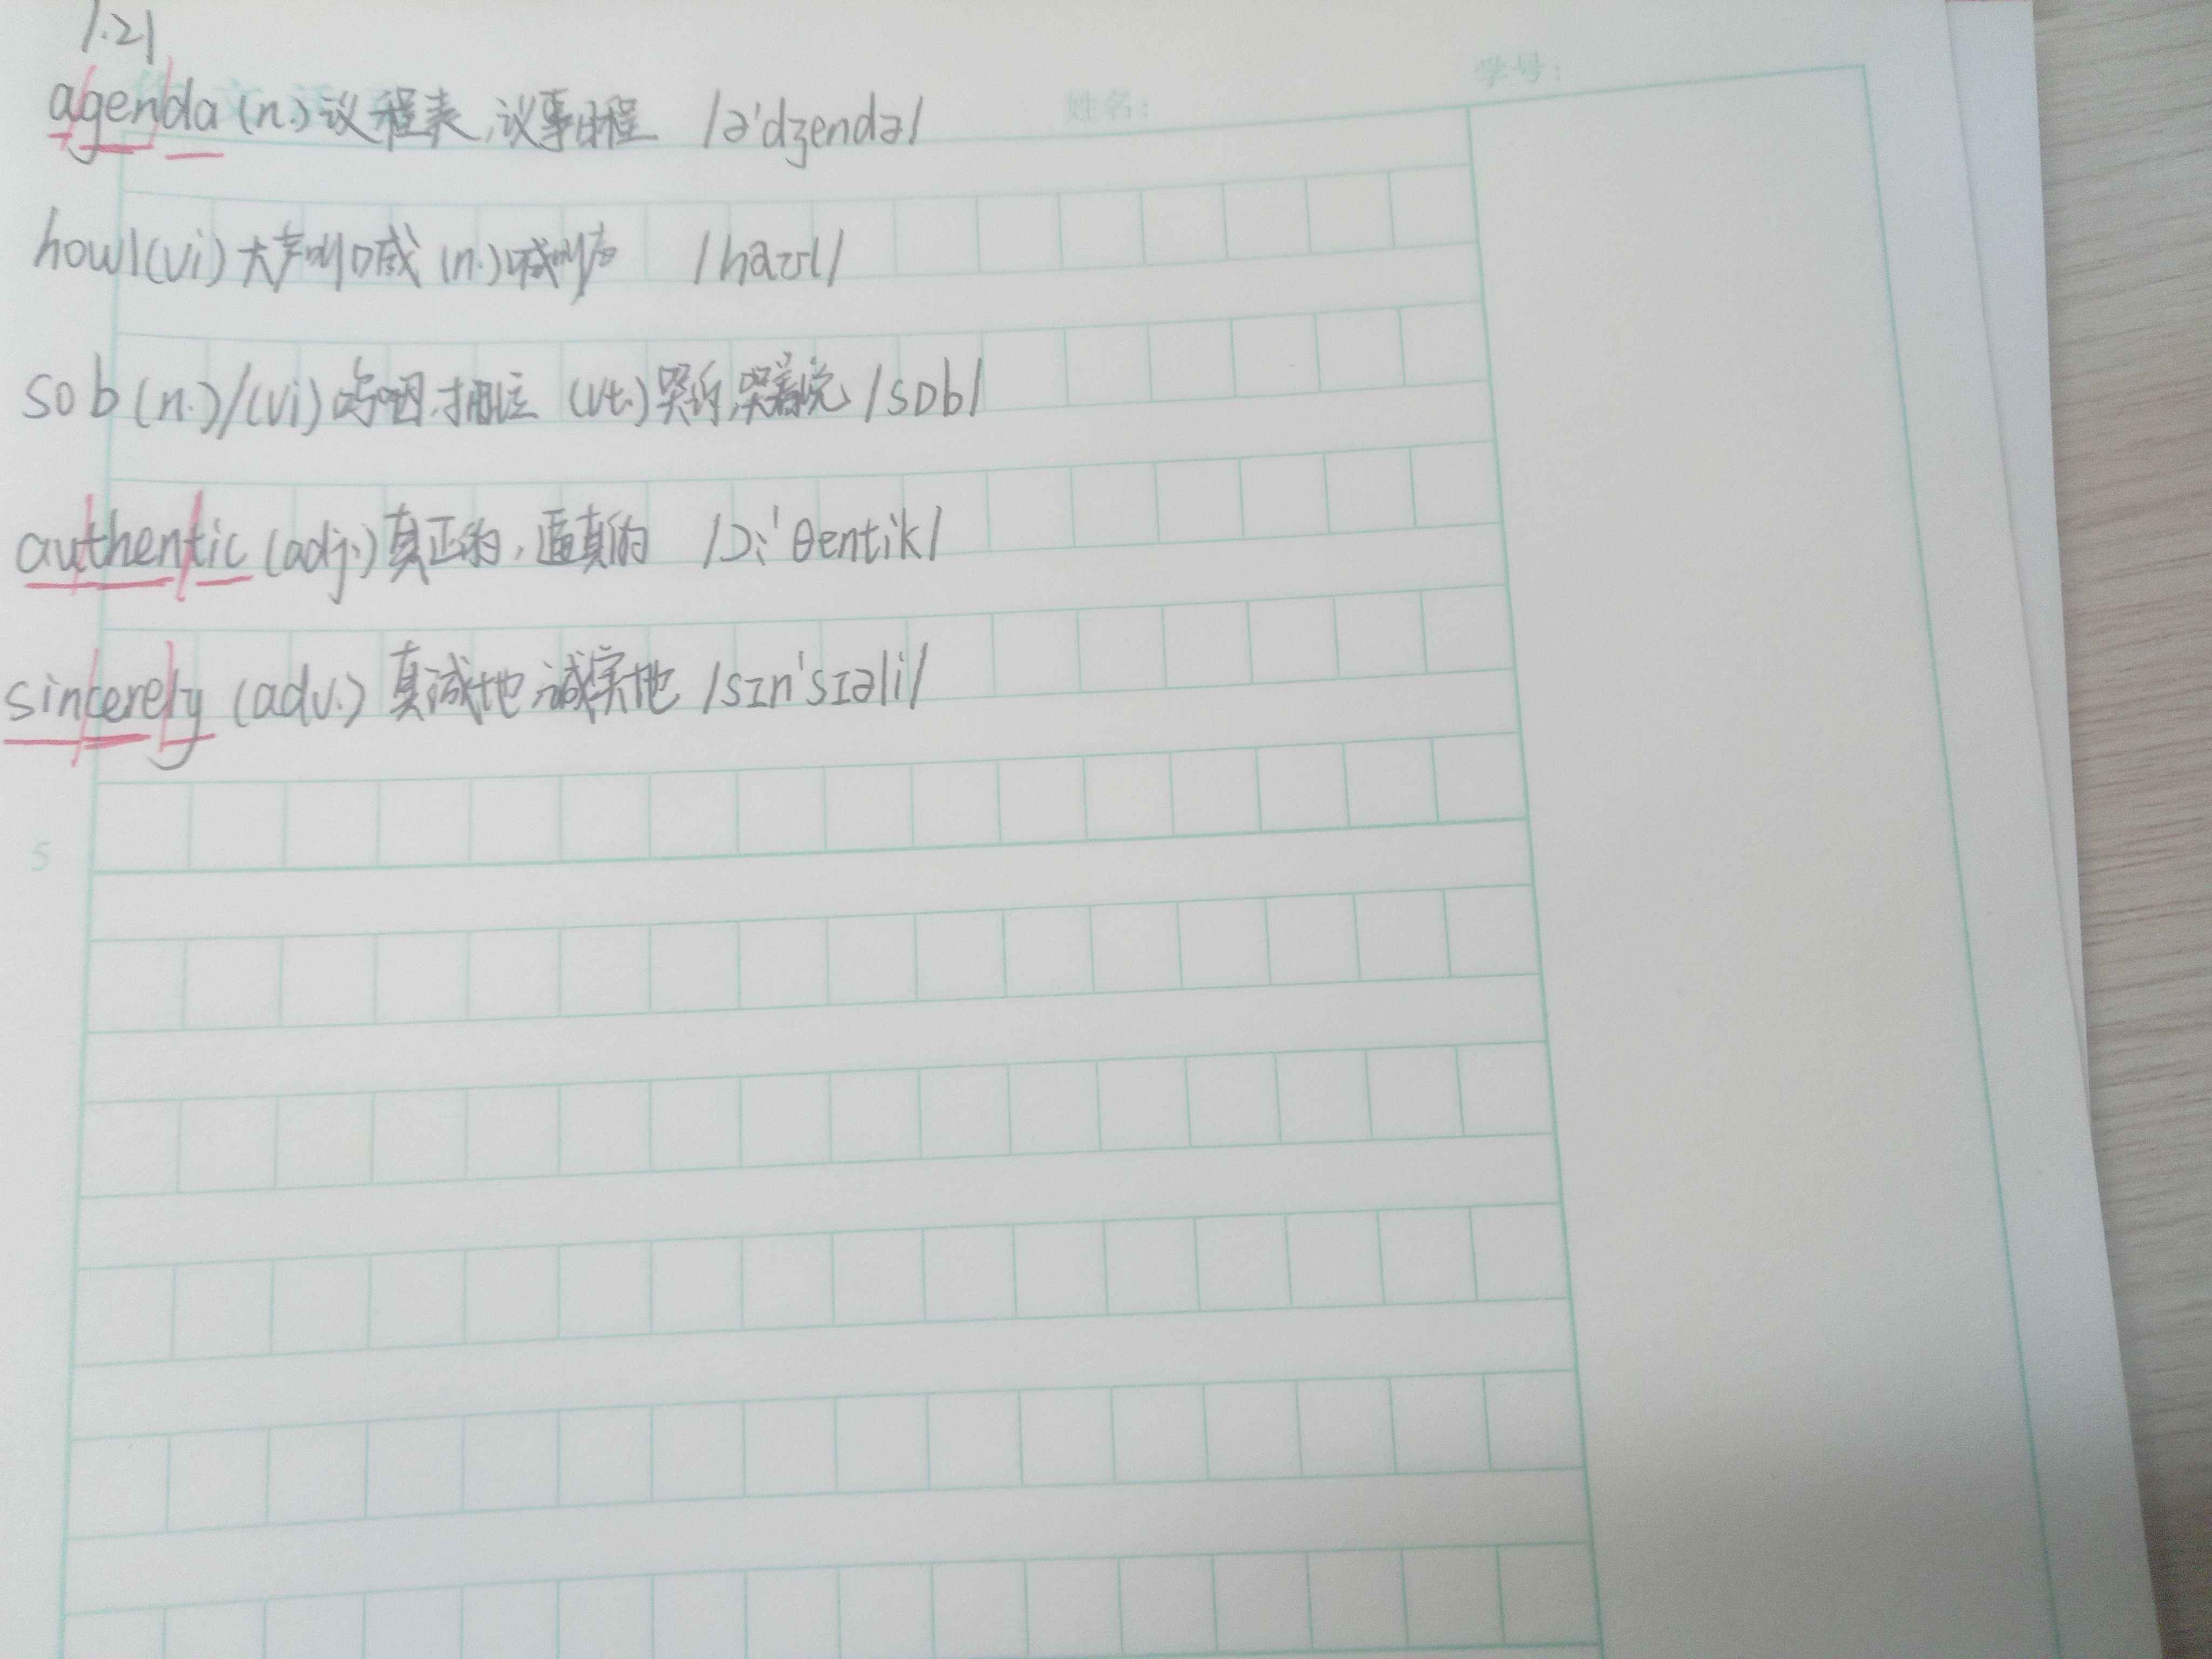 1.21
学号：
姓名：
agenda (n.) 议程表,议事日程 /ə'dʒendə/
howl (vi) 大声叫喊 (n.) 喊叫声 /haʊl/
sob (n.)/(vi) 呜咽,抽泣 (vt.) 哭诉,哭着说 /sɒb/
authentic (adj.) 真正的,逼真的 /ɔ:'θentik/
sincerely (adv.) 真诚地 诚实地 /sɪn'sɪəli/
5